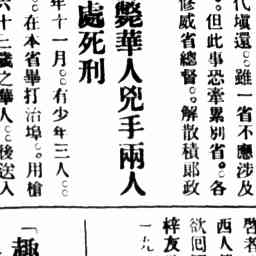 代塡還。雖一省不應涉及
。但此事恐牽累別省。各
修威省總督。解散積郎政
斃華人兇手兩人
處死刑
年十一月。有少年三人。
。在本省畢打治埠。用槍
六十三歲之華人。後送入
啓者
西人
欲回
梓友
一九
「趣